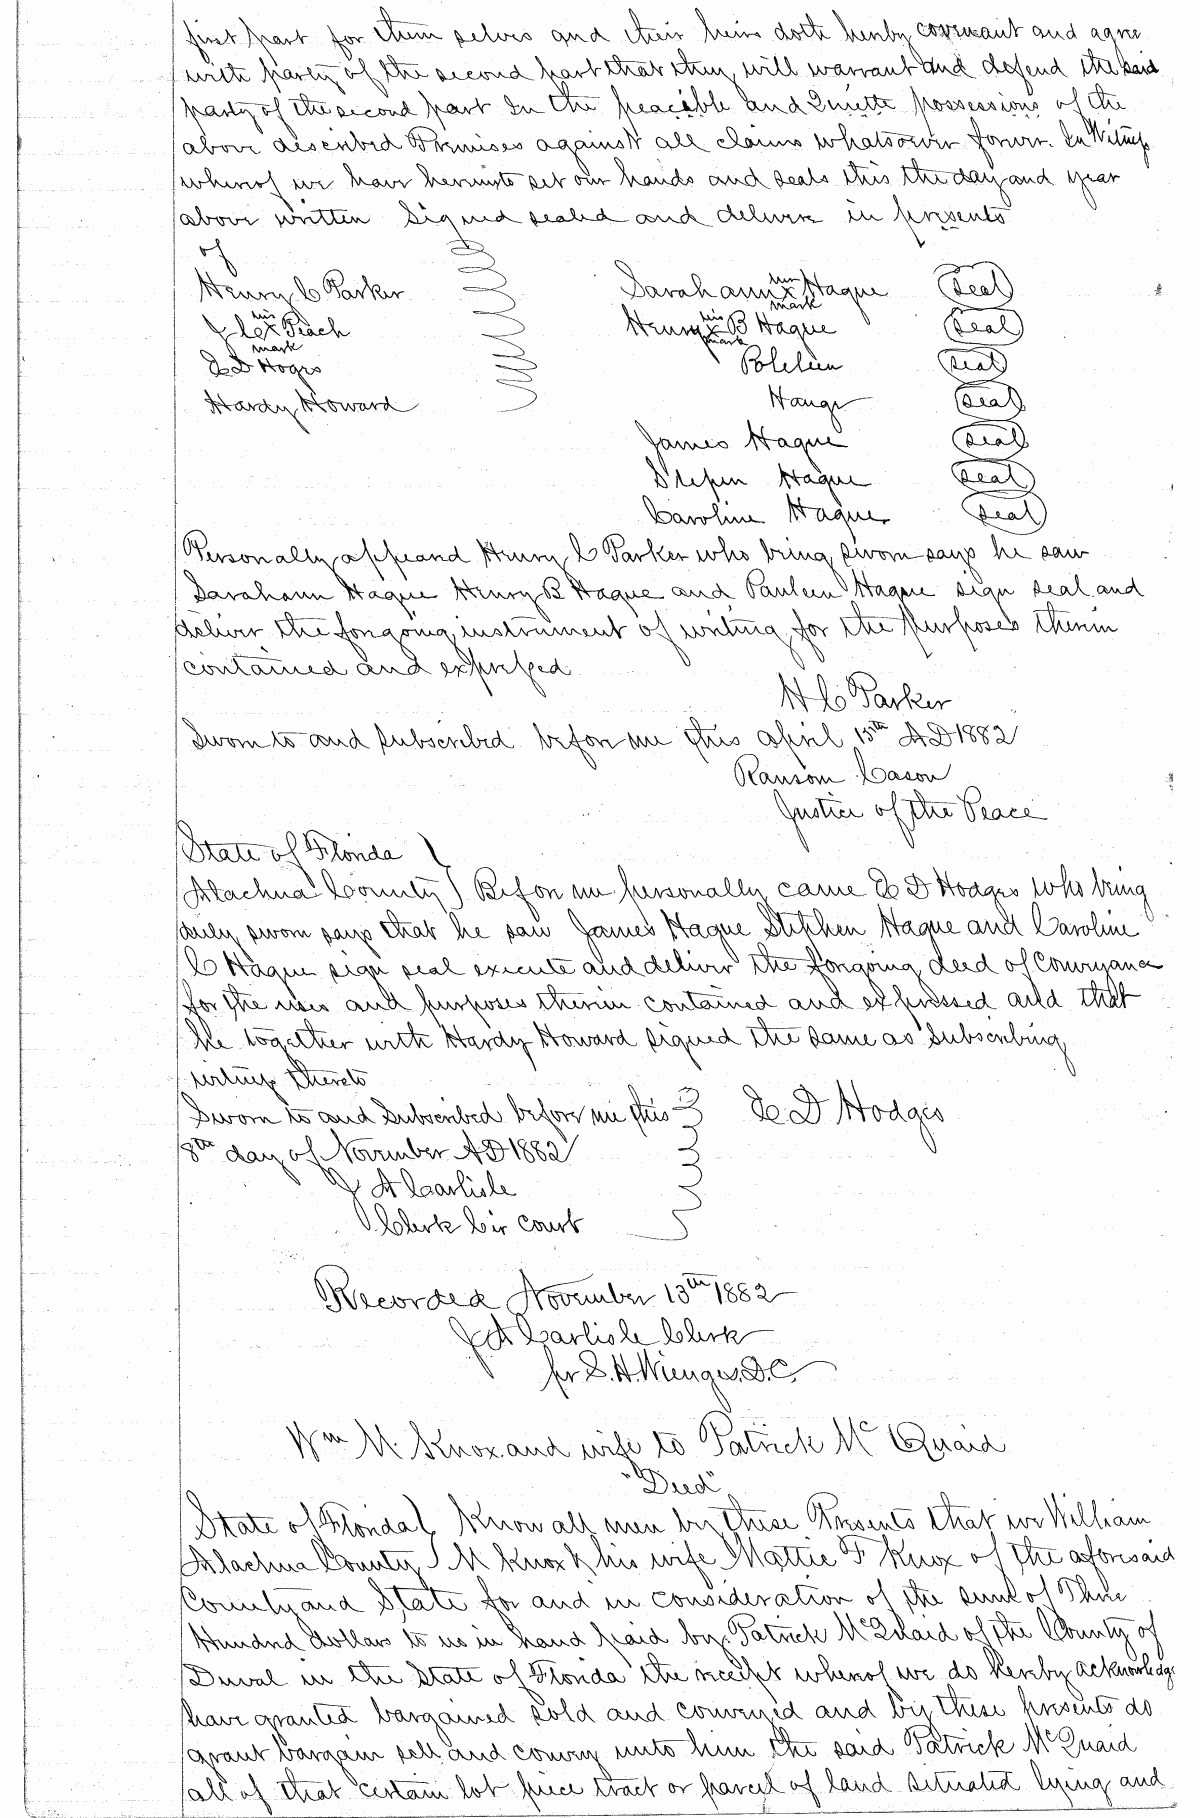 first part for them selves and their heirs doth hereby covenant and agree
with party of the second part that they will warrant and defend the said
party of the second part In the peacible and Quiette possessions of the
above described Premises against all claims whatsoever forever. In Witness
whereof we have hereunto set our hands and seals this the day and year
above written Signed sealed and deliver in presents
of
Henry C Parker Sarahann her x mark Hague Seal
his x mark Peach Henry his x mark B Hague Seal
E D Hoges Polelien Seal
Hardy Howard Hauge Seal
James Hague Seal
Stepen Hague Seal
Caroline Hague Seal
Personally appeared Henry C Parker who being sworn says he saw
Sarahann Hague Henry B Hague and Pauleen Hague sign seal and
deliver the forgoing instrument of writing for the purposes therein
contained and expressed
H C Parker
Sworn to and subscribed before me this april 15th AD 1882
Ransom Cason
Justice of the Peace
State of Florida
Alachua County } Before me personally came E D Hodges who being
duly sworn says that he saw James Hague Stephen Hague and Caroline
C Hague sign seal execute and deliver the forgoing deed of Conveyance
for the uses and purposes therein contained and expressed and that
he together with Hardy Howard signed the same as Subscribing
witness thereto
Sworn to and Subscribed before me this E D Hodges
8th day of November AD 1882
J A Carlisle
Clerk Cir Court
Recorded November 13th 1882
J A Carlisle Clerk
per S. H. Wienges. D. C.
Wm M. Knox and wife to Patrick Mc Quaid
"Deed"
State of Florida } Know all men by these Presents that we William
Alachua County } M Knox & his wife Mattie F Knox of the aforesaid
County and State for and in consideration of the sum of Three
Hundred dollars to us in hand paid by Patrick McQuaid of the County of
Duval in the State of Florida the receipt whereof we do hereby acknowledge
have granted bargained sold and conveyed and by these presents do
grant bargain sell and convey unto him the said Patrick McQuaid
all of that certain lot piece tract or parcel of land situated lying and